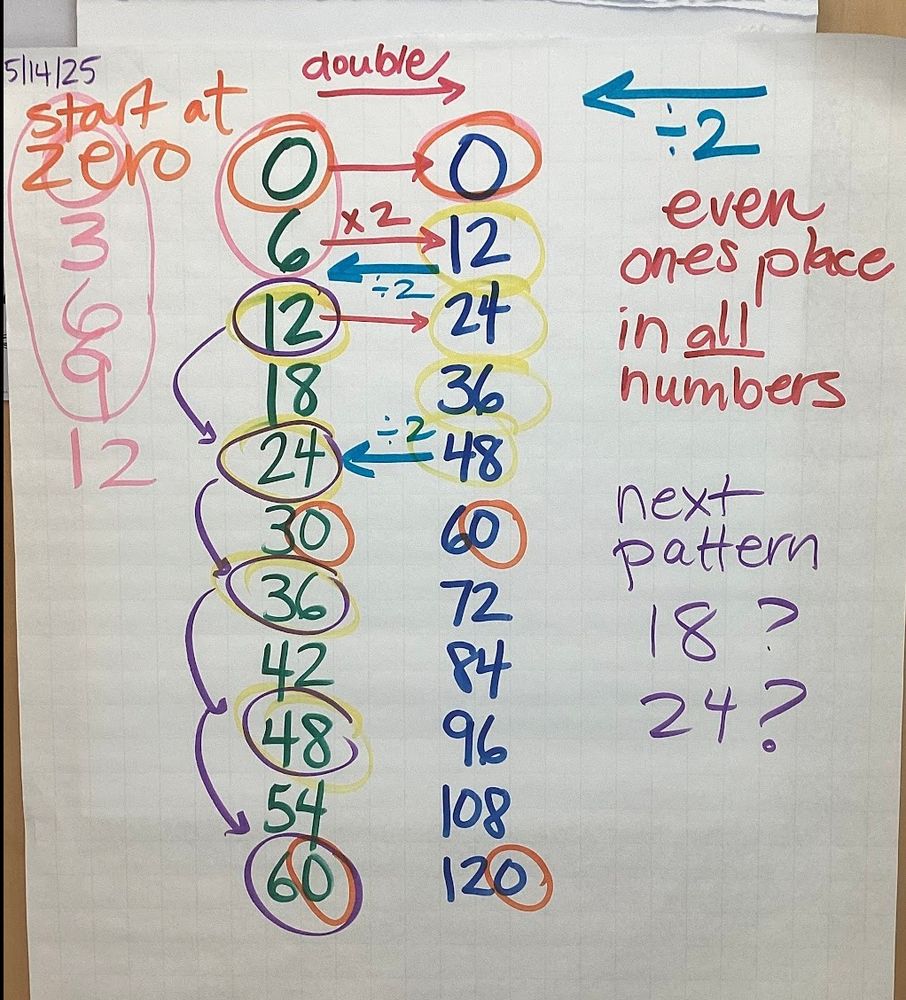 5/14/25
double
÷2
start at
zero
3
6
9
12
0 0
6 ×2 12
÷2
12 24
18 36
24 ÷2 48
30 60
36 72
42 84
48 96
54 108
60 120
even
ones place
in all
numbers
next
pattern
18 ?
24 ?